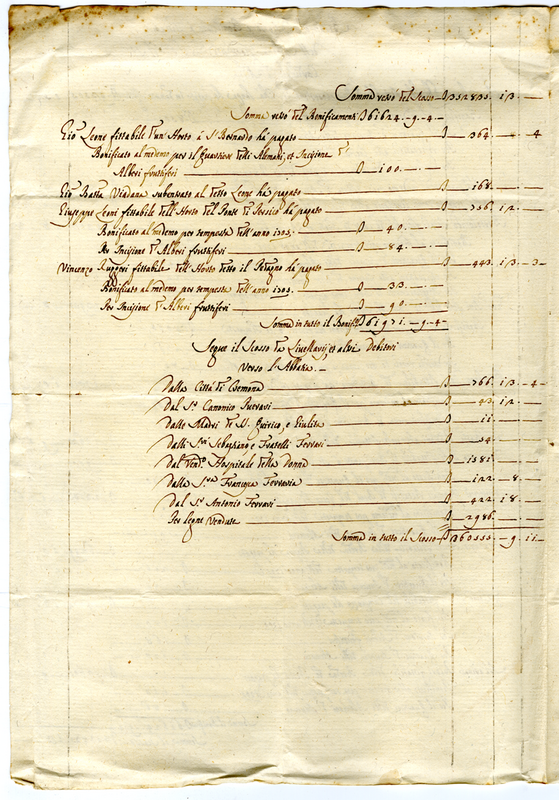 Somma verso del Scosso £ 352833. 13.
Somma verso del Bonificamenti £ 61624. - 9. - 4 -
Gio Leone fittabile d'un Horto à S. Bernardo hà pagato £ 364. 4
Bonificato al medemo per il quartiere delli Alemani, et Incisione d'
Alberi fruttiferi £ 100.
Gio Batta Viadana subentrato al detto Leone hà pagato £ 168.
Giuseppe Leoni fittabile dell'Horto del Ponte di Persico hà pagato £ 736. 12.
Bonificato al medemo per tempesta dell'anno 1705. £ 40.
Per Incisione d'Alberi fruttiferi £ 84.
Vincenzo Ruggeri fittabile dell'Horto detto il hà pagato £ 443. 13. 3
Bonificato al medemo per tempesta dell'anno 1705. £ 33.
Per Incisione d'Alberi fruttiferi £ 90.
Somma in tutto il Bonif.to £ 61971. - 9. - 4
Segue il Scosso da Livellarij, et altri Debitori
verso l'Abbatia. -
Dalla Città di Cremona £ 766. 13. 4
Dal S.r Canonico £ 43. 12.
Dalle Madri di S. Quirico, e Giulita £ 11.
Dalli S.ri Sebastiano, e Fratelli Ferrari £ 34.
Dal Ven.do Hospitale della Donna £ 1381.
Dalla S.ra Francesca Ferraria £ 122. 8.
Dal S.r Antonio Ferrari £ 422. 18.
Per Legne Vendute £ 2986.
Somma in tutto il Scosso £ 360333. 9. 11.